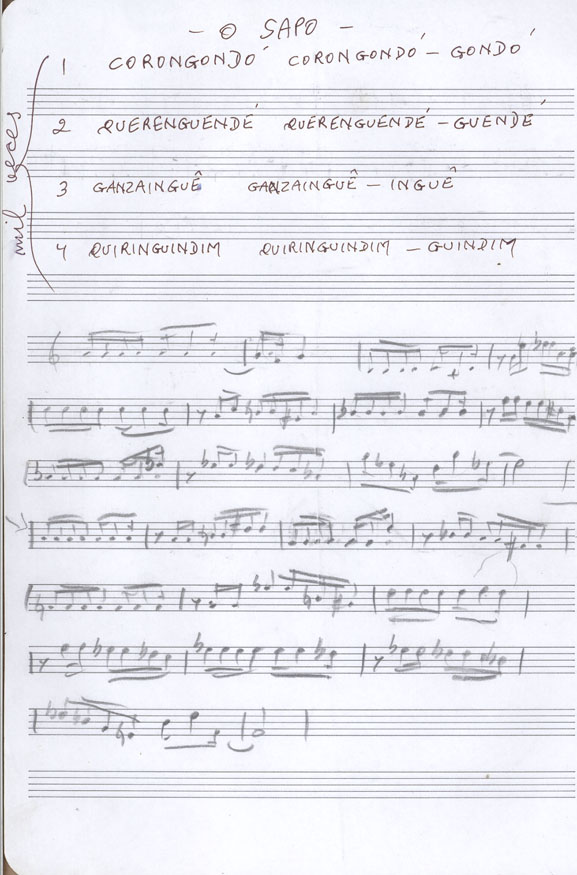 - O SAPO -
1 CORONGONDÓ CORONGONDÓ - GONDÓ
2 QUERENGUENDÉ QUERENGUENDÉ - GUENDÉ
3 GANZAINGUÊ GANZAINGUÊ - INGUÊ
4 QUIRINGUINDIM QUIRINGUINDIM - GUINDIM
mil vezes